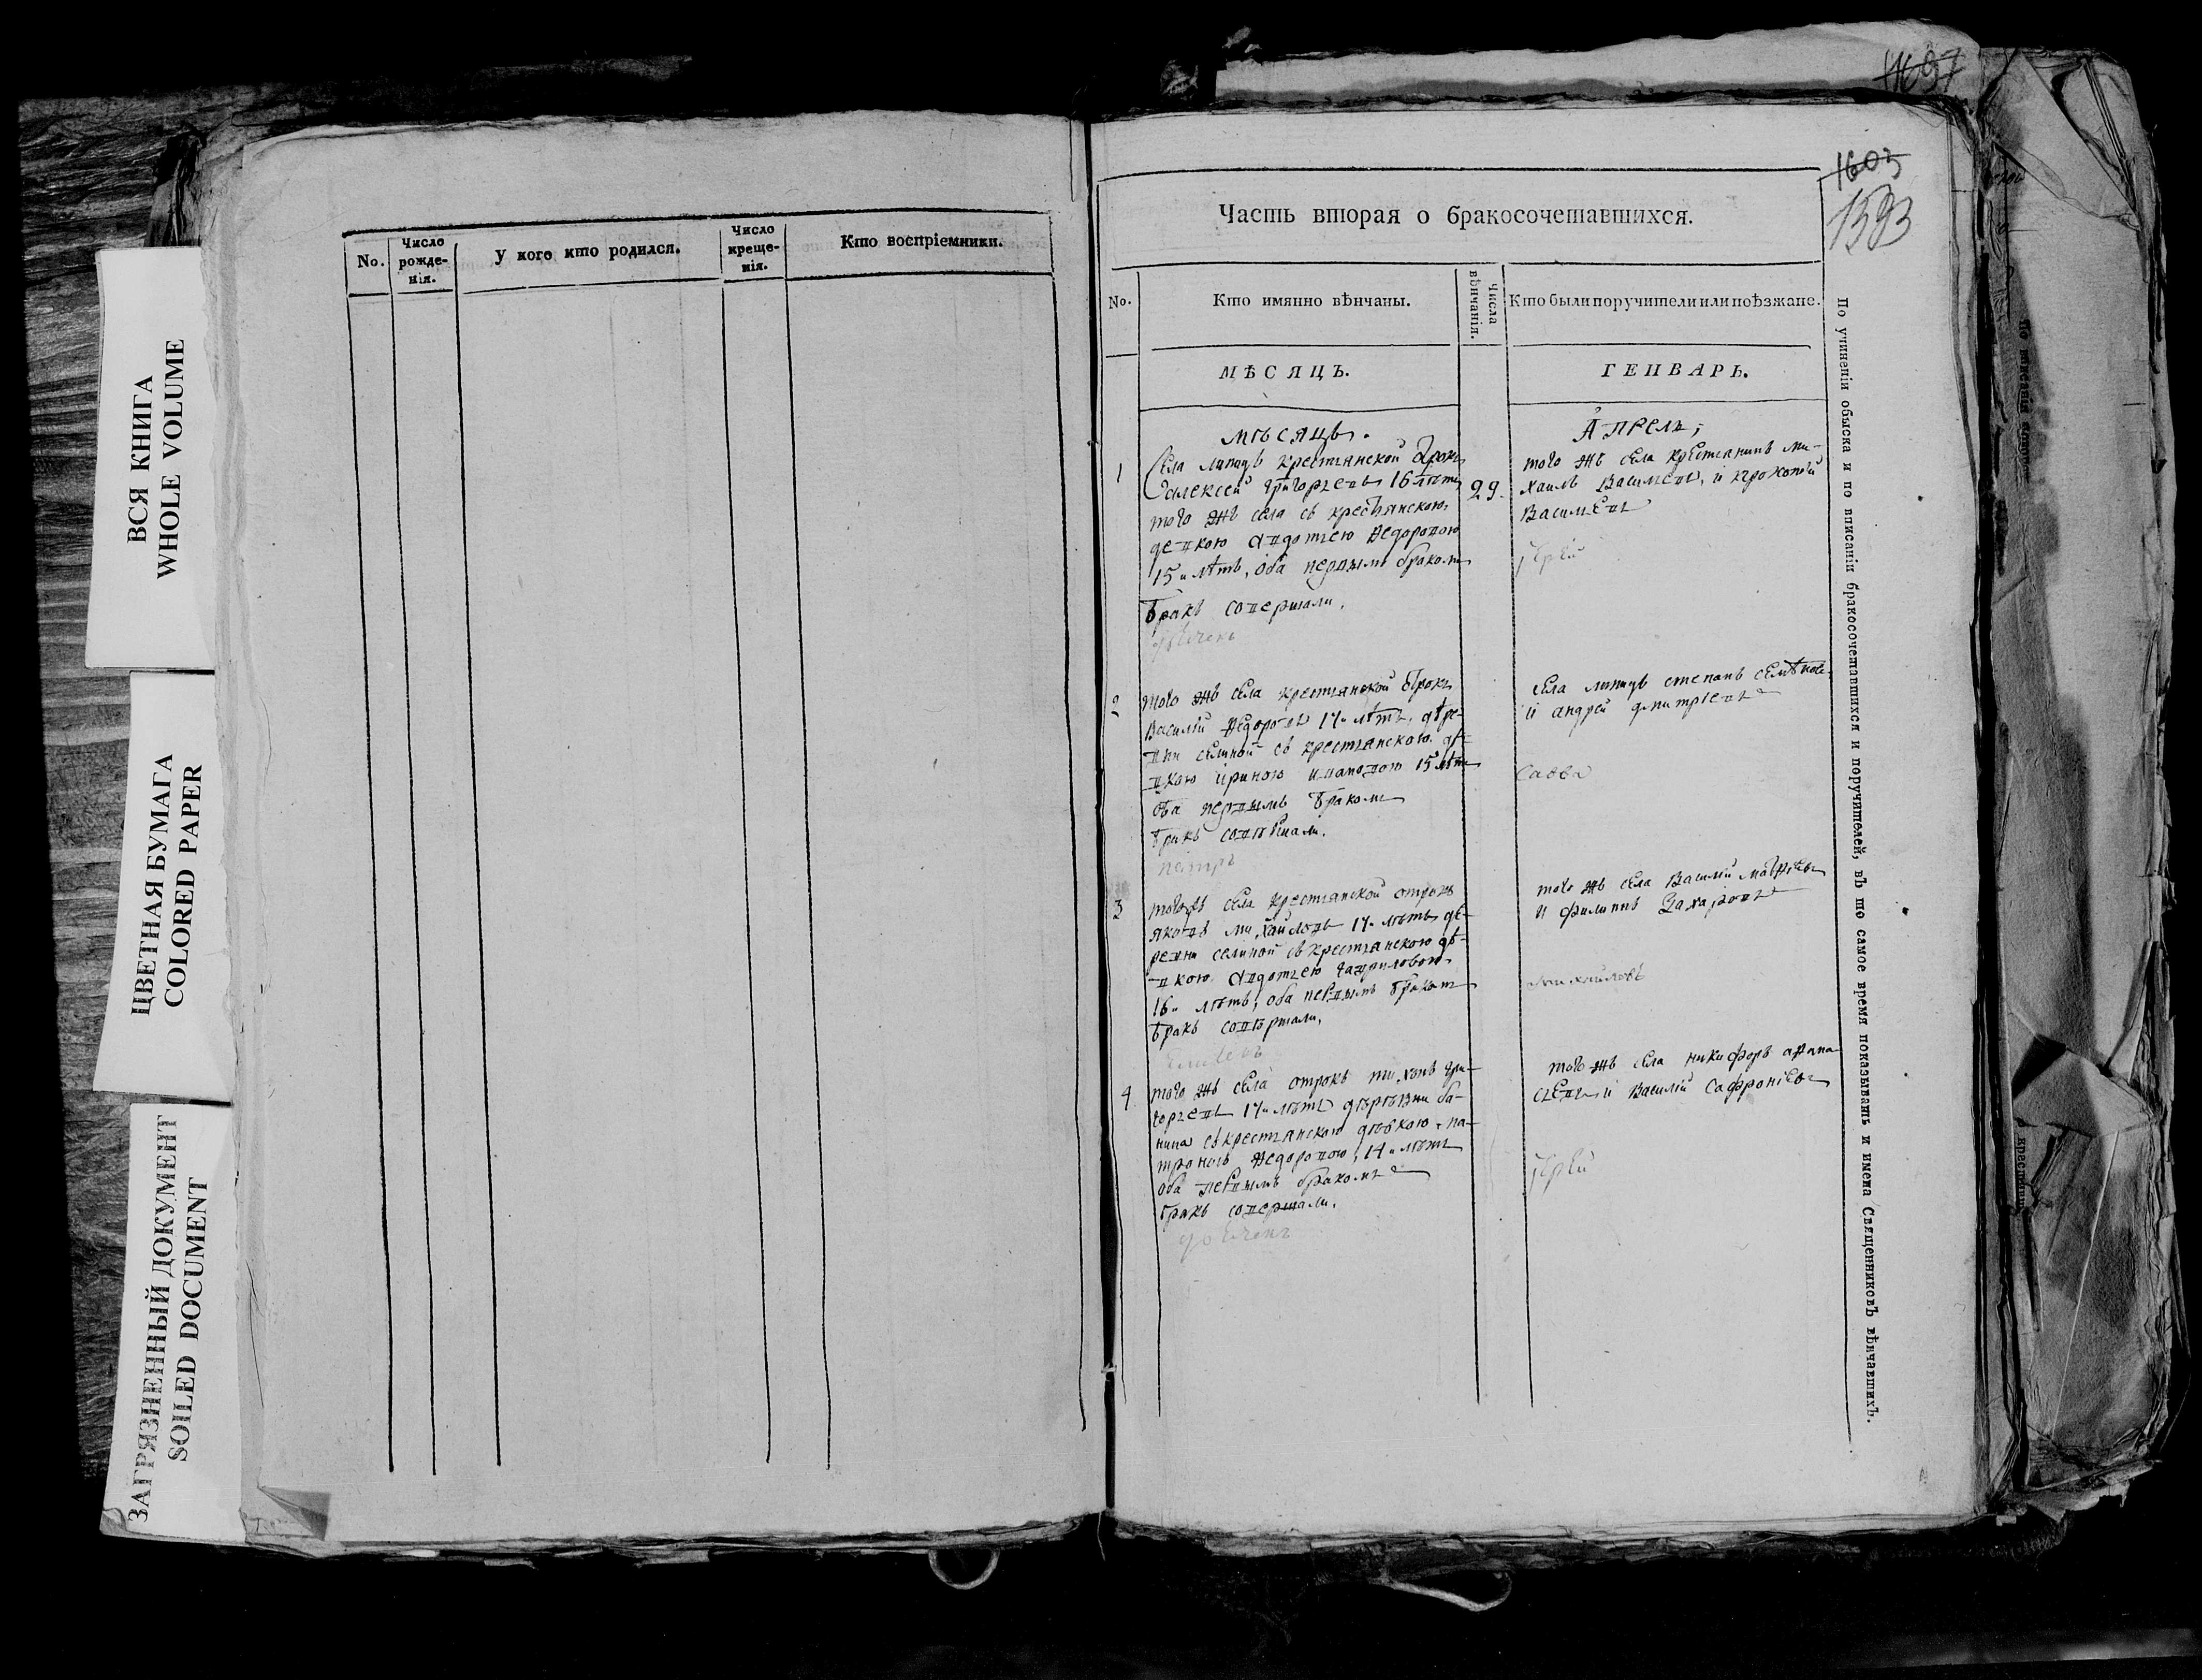 ВСЯ КНИГА
WHOLE VOLUME
ЦВЕТНАЯ БУМАГА
COLORED PAPER
ЗАГРЯЗНЕННЫЙ ДОКУМЕНТ
SOILED DOCUMENT
No.
Число рожде-нія.
У кого кто родился.
Число креще-нія.
Кто воспріемники.
1603
1593
Часть вторая о бракосочетавшихся.
No.
Кто имянно вѣнчаны.
Числа вѣнчанія.
Кто были поручители или поѣзжане.
МѢСЯЦЪ.
ГЕНВАРЬ.
мѣсяцъ.
Апрель,
1
Села липицъ крестьянской отрокъ
алексей григорьевъ 16 лѣтъ
того жъ села съ крестьянскою
девкою авдотьею Ѳедоровою
15 и лѣтъ, оба первымъ бракомъ
бракъ совершали,
29.
того жъ села крестьянинъ ми-
хаилъ Васильевъ, и прокопей
Васильевъ
іерей
2
того жъ села крестьянской отрокъ
Василій Ѳедоровъ 17 и лѣтъ, дѣре-
вни селиной съ крестьянскою дѣ-
вкою ириною 15 лѣтъ
оба первымъ бракомъ
бракъ совѣршали.
петръ
села липицъ степанъ
и андрей дмитріевъ
савва
3
села крестьянской отрокъ
яковъ михайловъ 17 и лѣтъ де-
ревни селиной съ крестьянскою дѣ-
вкою авдотьею гавриловою
16 и лѣтъ, оба первымъ бракомъ
бракъ совѣршали,
того жъ села Василій
и филиппъ Захаровъ
михайловъ
4
того жъ села отрокъ тихонъ гри-
горьевъ 17 и лѣтъ дѣрѣвни ба-
нина съ крестьянскою дѣвкою ма-
троною Ѳедоровою, 14 и лѣтъ
оба первымъ бракомъ
бракъ совершали.
того жъ села никифоръ аѲана-
сьевъ и Василій Сафроніевъ
іерей
По учиненіи обыска и по вписаніи бракосочетавшихся и поручителей, въ то самое время показывать и имена Священниковъ вѣнчавшихъ.